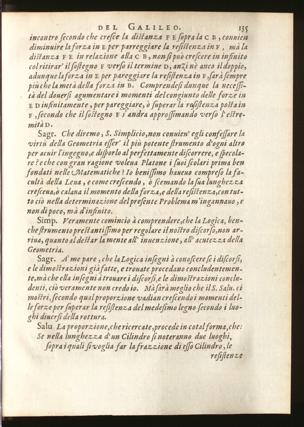 DEL GALILEO. 135
incontro secondo che cresce la distanza FE sopra la CB, conuien
diminuire la forza in E per pareggiare la resistenza in F, mà la
distanza FE in relazione alla CB, non si può crescere in infinito
col ritirar' il sostegno F verso il termine D, anzi nè anco il doppio,
adunque la forza in E per pareggiare la resistenza in F sarà sempre
più che la metà della forza in D. Comprendesi dunque la necessi-
tà del douersi agumentare i momenti del congiunto delle forze in
E D infinitamente, per pareggiare, ò superar la resistenza posta in
F, secondo che il sostegno F s' andrà approssimando verso l'estre-
mità D.
Sagr. Che diremo, S. Simplicio, non conuien' egli confessare la
virtù della Geometria esser' il più potente strumento d'ogni altro
per acuir l'ingegno, e disporlo al perfettamente discorrere, e specola-
re? e che con gran ragione voleua Platone i suoi scolari prima ben
fondati nelle Matematiche? Io benissimo haueuo compreso la fa-
cultà della Leua, e come crescendo, ò scemando la sua lunghezza
cresceua, ò calaua il momento della forza, e della resistenza, con tut-
to ciò nella determinazione del presente Problema m'ingannauo, e
non di poco, mà d'infinito.
Simp. Veramente comincio à comprendere, che la Logica, ben-
che strumento prestantissimo per regolare il nostro discorso, non ar-
riua, quanto al destar la mente all' inuenzione, all' acutezza della
Geometria.
Sagr. A' me pare, che la Logica insegni à conoscere se i discorsi,
e le dimostrazioni già fatte, e trouate procedano concludentemen-
te, mà che ella insegni à trouare i discorsi, e le dimostrazioni conclu-
denti, ciò veramente non credo io. Mà sarà meglio che il S. Salu. ci
mostri, secondo qual proporzione vadian crescendo i momenti del-
le forze per superar la resistenza del medesimo legno secondo i luo-
ghi diuersi della rottura.
Salu. La proporzione, che ricercate, procede in cotal forma, che:
Se nella lunghezza d'un Cilindro si noteranno due luoghi,
sopra i quali si voglia far la frazzione di esso Cilindro, le
resistenze